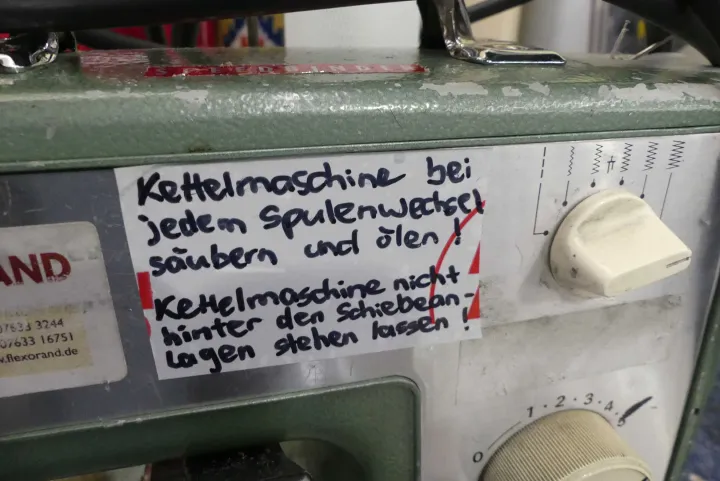 Kettelmaschine bei
jedem Spulenwechsel
säubern und ölen!
Kettelmaschine nicht
hinter den Schiebean-
lagen stehen lassen!
AND
07633 3244
07633 16751
w.flexorand.de
0 1 · 2 · 3 · 4 · 5